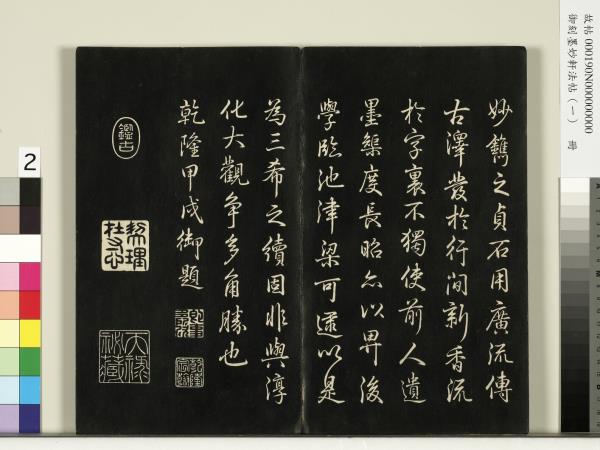 妙鐫之貞石用廣流傳
古澤發於行間新香流
於字裏不獨使前人遺
墨榘度長昭亦以畀後
學臨池津梁可遂以是
為三希之續固非與淳
化大觀爭多角勝也
乾隆甲戌御題
鑑古
乾隆
天祿
祕藏
故帖 000190N000000000
御刻墨妙軒法帖（一） 冊
2